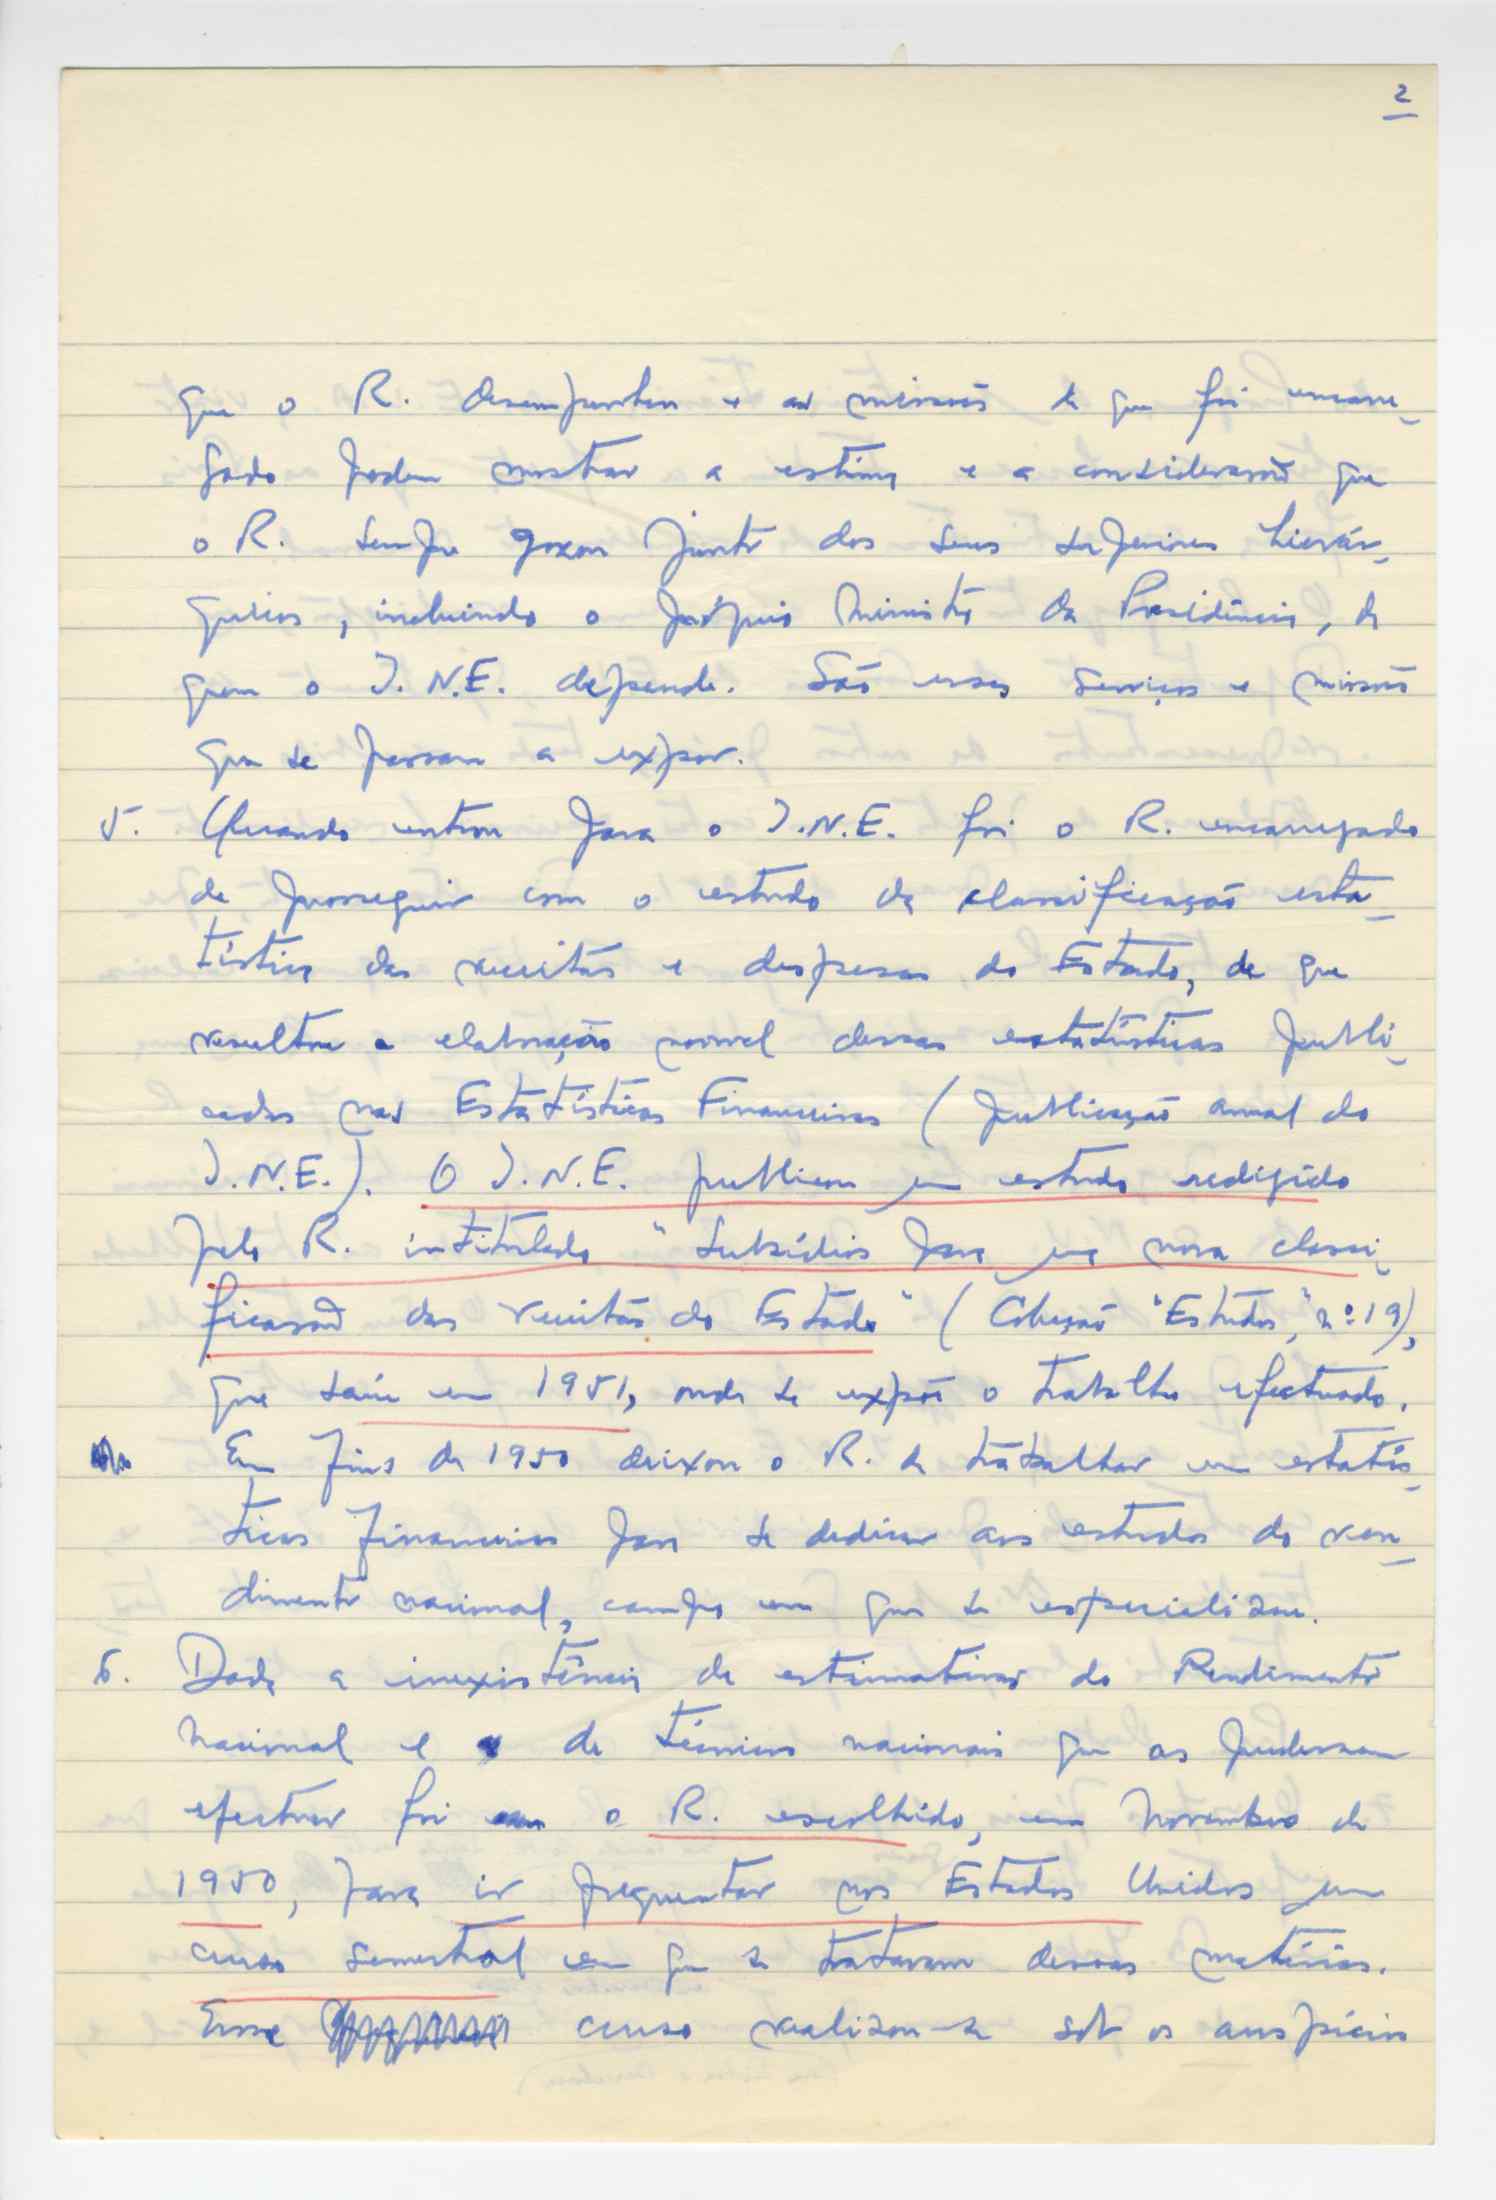 2
que o R. desempenhou e as missões de que foi encarre-
gado podem mostrar a estima e a consideração que
o R. sempre gozou junto dos seus superiores hierár-
quicos, incluindo o próprio Ministro da Presidência, de
quem o I.N.E. depende. São esses serviços e missões
que se passam a expor.
5. Quando entrou para o I.N.E. foi o R. encarregado
de prosseguir com o estudo da classificação esta-
tística das receitas e despesas do Estado, de que
resultou a elaboração normal dessas estatísticas publi-
cadas nas Estatísticas Financeiras (publicação anual do
I.N.E.). O I.N.E. publicou um estudo redigido
pelo R. intitulado "Subsídios para uma nova classi-
ficação das receitas do Estado" (Colecção "Estudos", nº 19),
que saiu em 1951, onde se expõe o trabalho efectuado.
Em fins de 1950 deixou o R. de trabalhar em estatís-
ticas financeiras para se dedicar aos estudos do ren-
dimento nacional, campo em que se especializou.
6. Dada a inexistência de estimativas do Rendimento
Nacional e de técnicos nacionais que as pudessem
efectuar foi o R. escolhido, em Novembro de
1950, para ir frequentar nos Estados Unidos um
curso semestral em que se trataram dessas matérias.
Esse curso realizou-se sob os auspícios